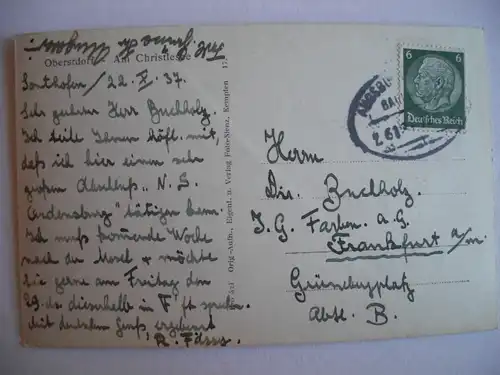 Oberstdorf - Am Christlessee
Sonthofen / 22. X. 37.
Sehr geehrter Herr Buchholz.
Ich teile Ihnen höfl. mit,
daß ich hier einen sehr
großen Abschluß „N. S.
Ordensburg" tätigen kann.
Ich muß kommende Woche
nach der Mosel & möchte
Sie gerne am Freitag den
29. ds. dieserhalb in F'ft sprechen.
Mit deutschem Gruß, ergebenst
Orig.-Aufn., Eigent. u. Verlag Kempten
6 6
Deutsches Reich
Herrn
Dir. Buchholz.
I. G. Farben A. G.
Frankfurt a/m.
Grüneburgplatz
Abtl. B.